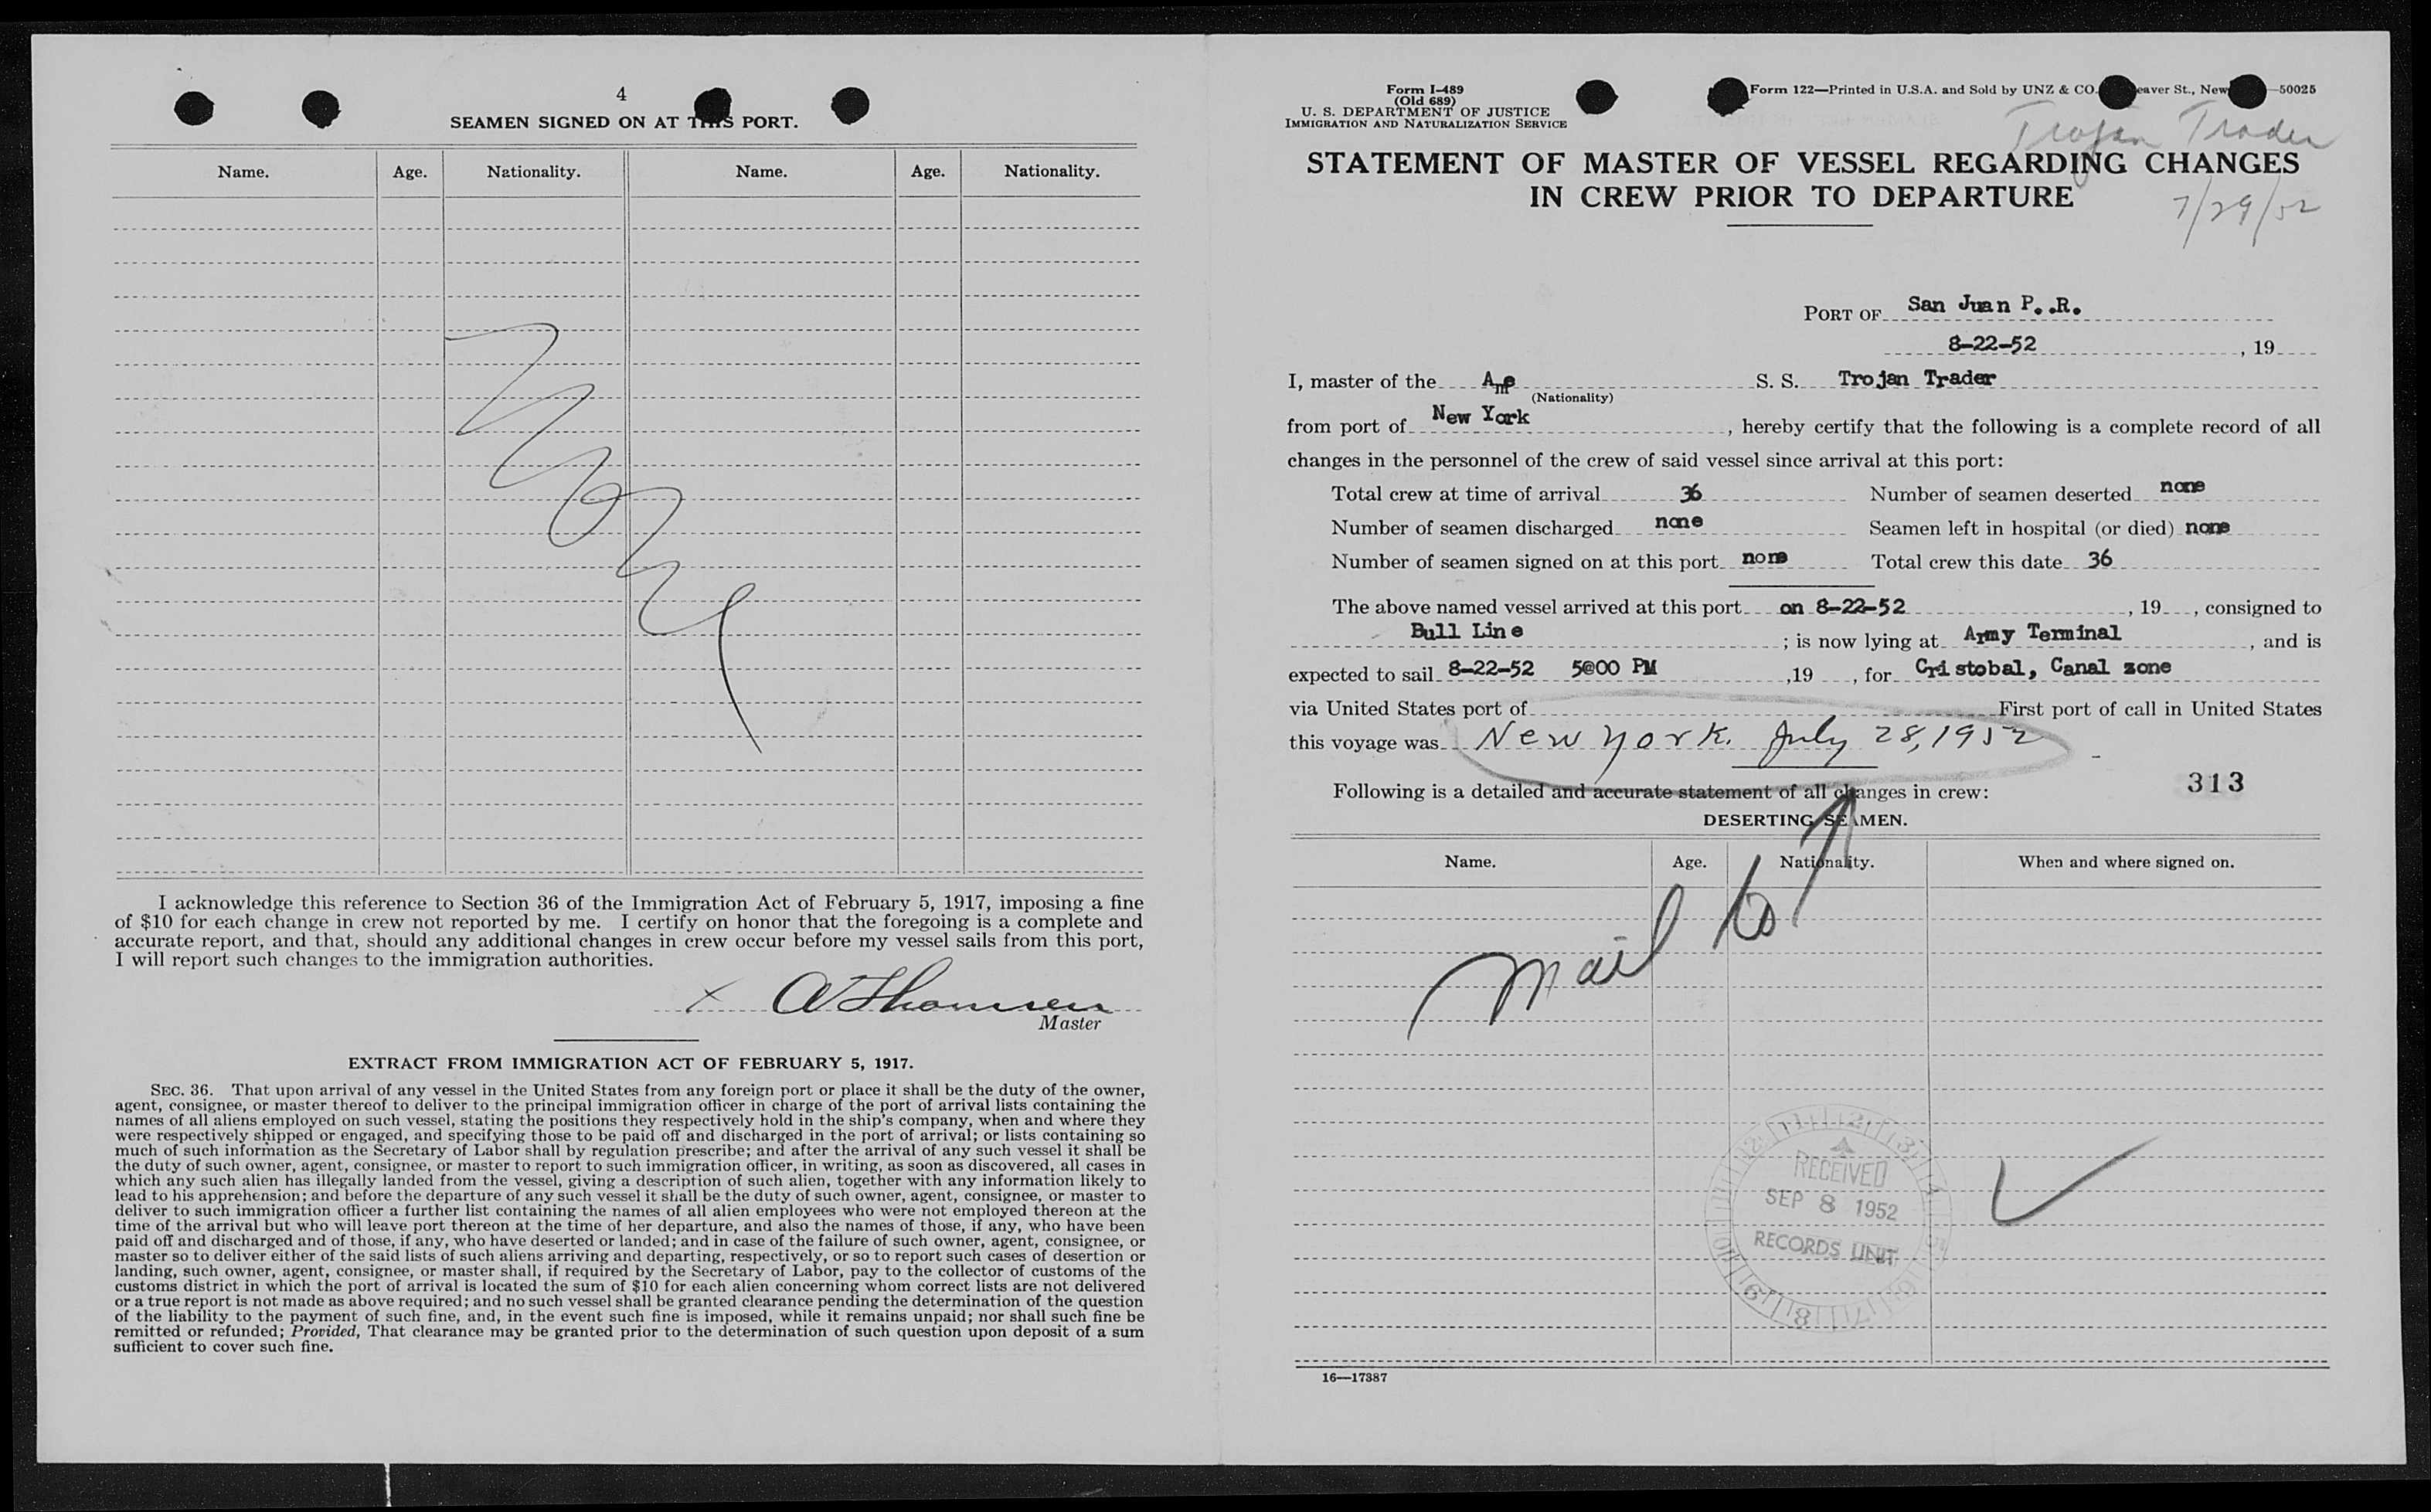 4
SEAMEN SIGNED ON AT THIS PORT.
Name. Age. Nationality. Name. Age. Nationality.
None
I acknowledge this reference to Section 36 of the Immigration Act of February 5, 1917, imposing a fine
of $10 for each change in crew not reported by me. I certify on honor that the foregoing is a complete and
accurate report, and that, should any additional changes in crew occur before my vessel sails from this port,
I will report such changes to the immigration authorities.
x A Thomsen
Master
EXTRACT FROM IMMIGRATION ACT OF FEBRUARY 5, 1917.
SEC. 36. That upon arrival of any vessel in the United States from any foreign port or place it shall be the duty of the owner,
agent, consignee, or master thereof to deliver to the principal immigration officer in charge of the port of arrival lists containing the
names of all aliens employed on such vessel, stating the positions they respectively hold in the ship's company, when and where they
were respectively shipped or engaged, and specifying those to be paid off and discharged in the port of arrival; or lists containing so
much of such information as the Secretary of Labor shall by regulation prescribe; and after the arrival of any such vessel it shall be
the duty of such owner, agent, consignee, or master to report to such immigration officer, in writing, as soon as discovered, all cases in
which any such alien has illegally landed from the vessel, giving a description of such alien, together with any information likely to
lead to his apprehension; and before the departure of any such vessel it shall be the duty of such owner, agent, consignee, or master to
deliver to such immigration officer a further list containing the names of all alien employees who were not employed thereon at the
time of the arrival but who will leave port thereon at the time of her departure, and also the names of those, if any, who have been
paid off and discharged and of those, if any, who have deserted or landed; and in case of the failure of such owner, agent, consignee, or
master so to deliver either of the said lists of such aliens arriving and departing, respectively, or so to report such cases of desertion or
landing, such owner, agent, consignee, or master shall, if required by the Secretary of Labor, pay to the collector of customs of the
customs district in which the port of arrival is located the sum of $10 for each alien concerning whom correct lists are not delivered
or a true report is not made as above required; and no such vessel shall be granted clearance pending the determination of the question
of the liability to the payment of such fine, and, in the event such fine is imposed, while it remains unpaid; nor shall such fine be
remitted or refunded; Provided, That clearance may be granted prior to the determination of such question upon deposit of a sum
sufficient to cover such fine.
Form I-489
(Old 689)
U. S. DEPARTMENT OF JUSTICE
IMMIGRATION AND NATURALIZATION SERVICE
Form 122—Printed in U.S.A. and Sold by UNZ & CO. eaver St., New —50025
Trojan Trader
STATEMENT OF MASTER OF VESSEL REGARDING CHANGES
IN CREW PRIOR TO DEPARTURE
7/29/52
PORT OF San Juan P..R.
8-22-52 , 19
I, master of the Am S. S. Trojan Trader
(Nationality)
from port of New York , hereby certify that the following is a complete record of all
changes in the personnel of the crew of said vessel since arrival at this port:
Total crew at time of arrival 36 Number of seamen deserted none
Number of seamen discharged none Seamen left in hospital (or died) none
Number of seamen signed on at this port none Total crew this date 36
The above named vessel arrived at this port on 8-22-52 , 19 , consigned to
Bull Line ; is now lying at Army Terminal , and is
expected to sail 8-22-52 5@00 PM ,19 , for Cristobal, Canal zone
via United States port of First port of call in United States
this voyage was New York. July 28, 1952
Following is a detailed and accurate statement of all changes in crew:
313
DESERTING SEAMEN.
Name. Age. Nationality. When and where signed on.
Mail to
RECEIVED
SEP 8 1952
RECORDS UNIT
16—17387